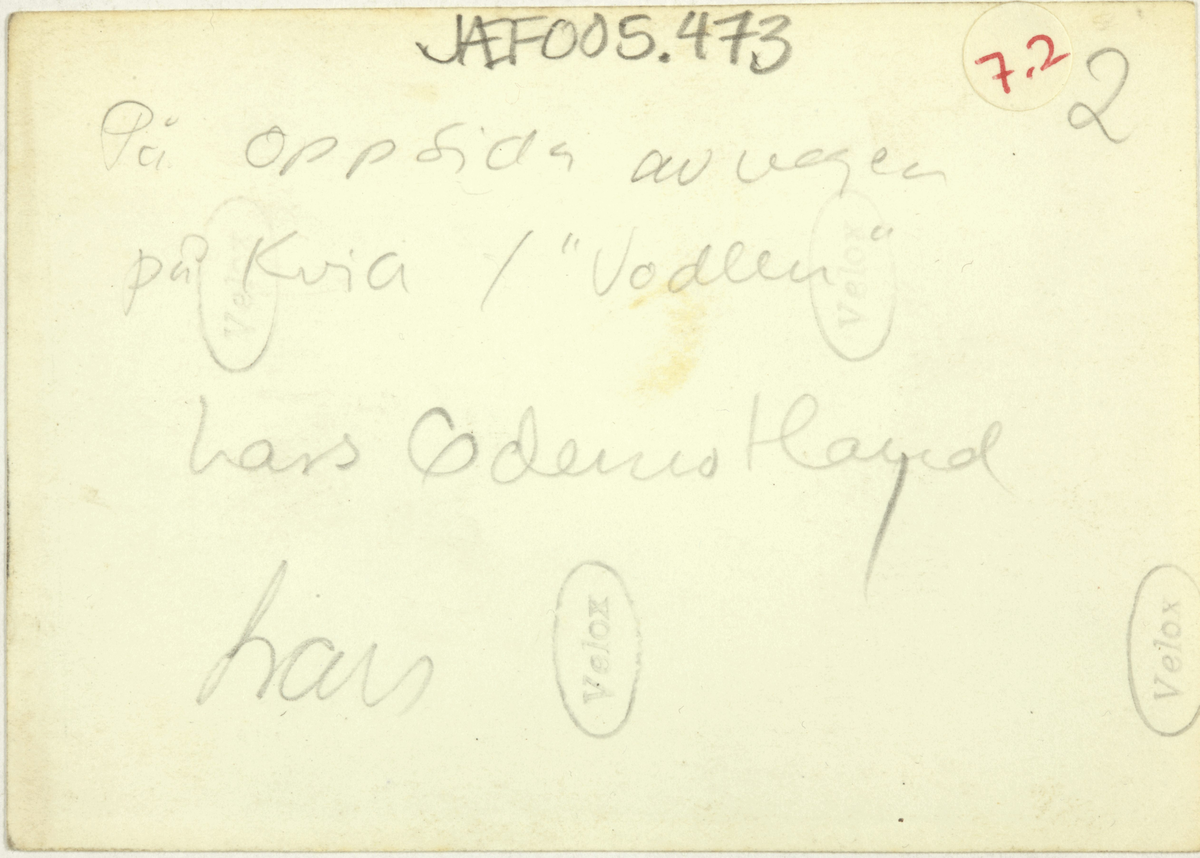 JÆF005.473
7.2
2
På oppsida av vegen
på Kvia / "Vodlen"
Lars Ødemotland
Lars
Velox
Velox
Velox
Velox